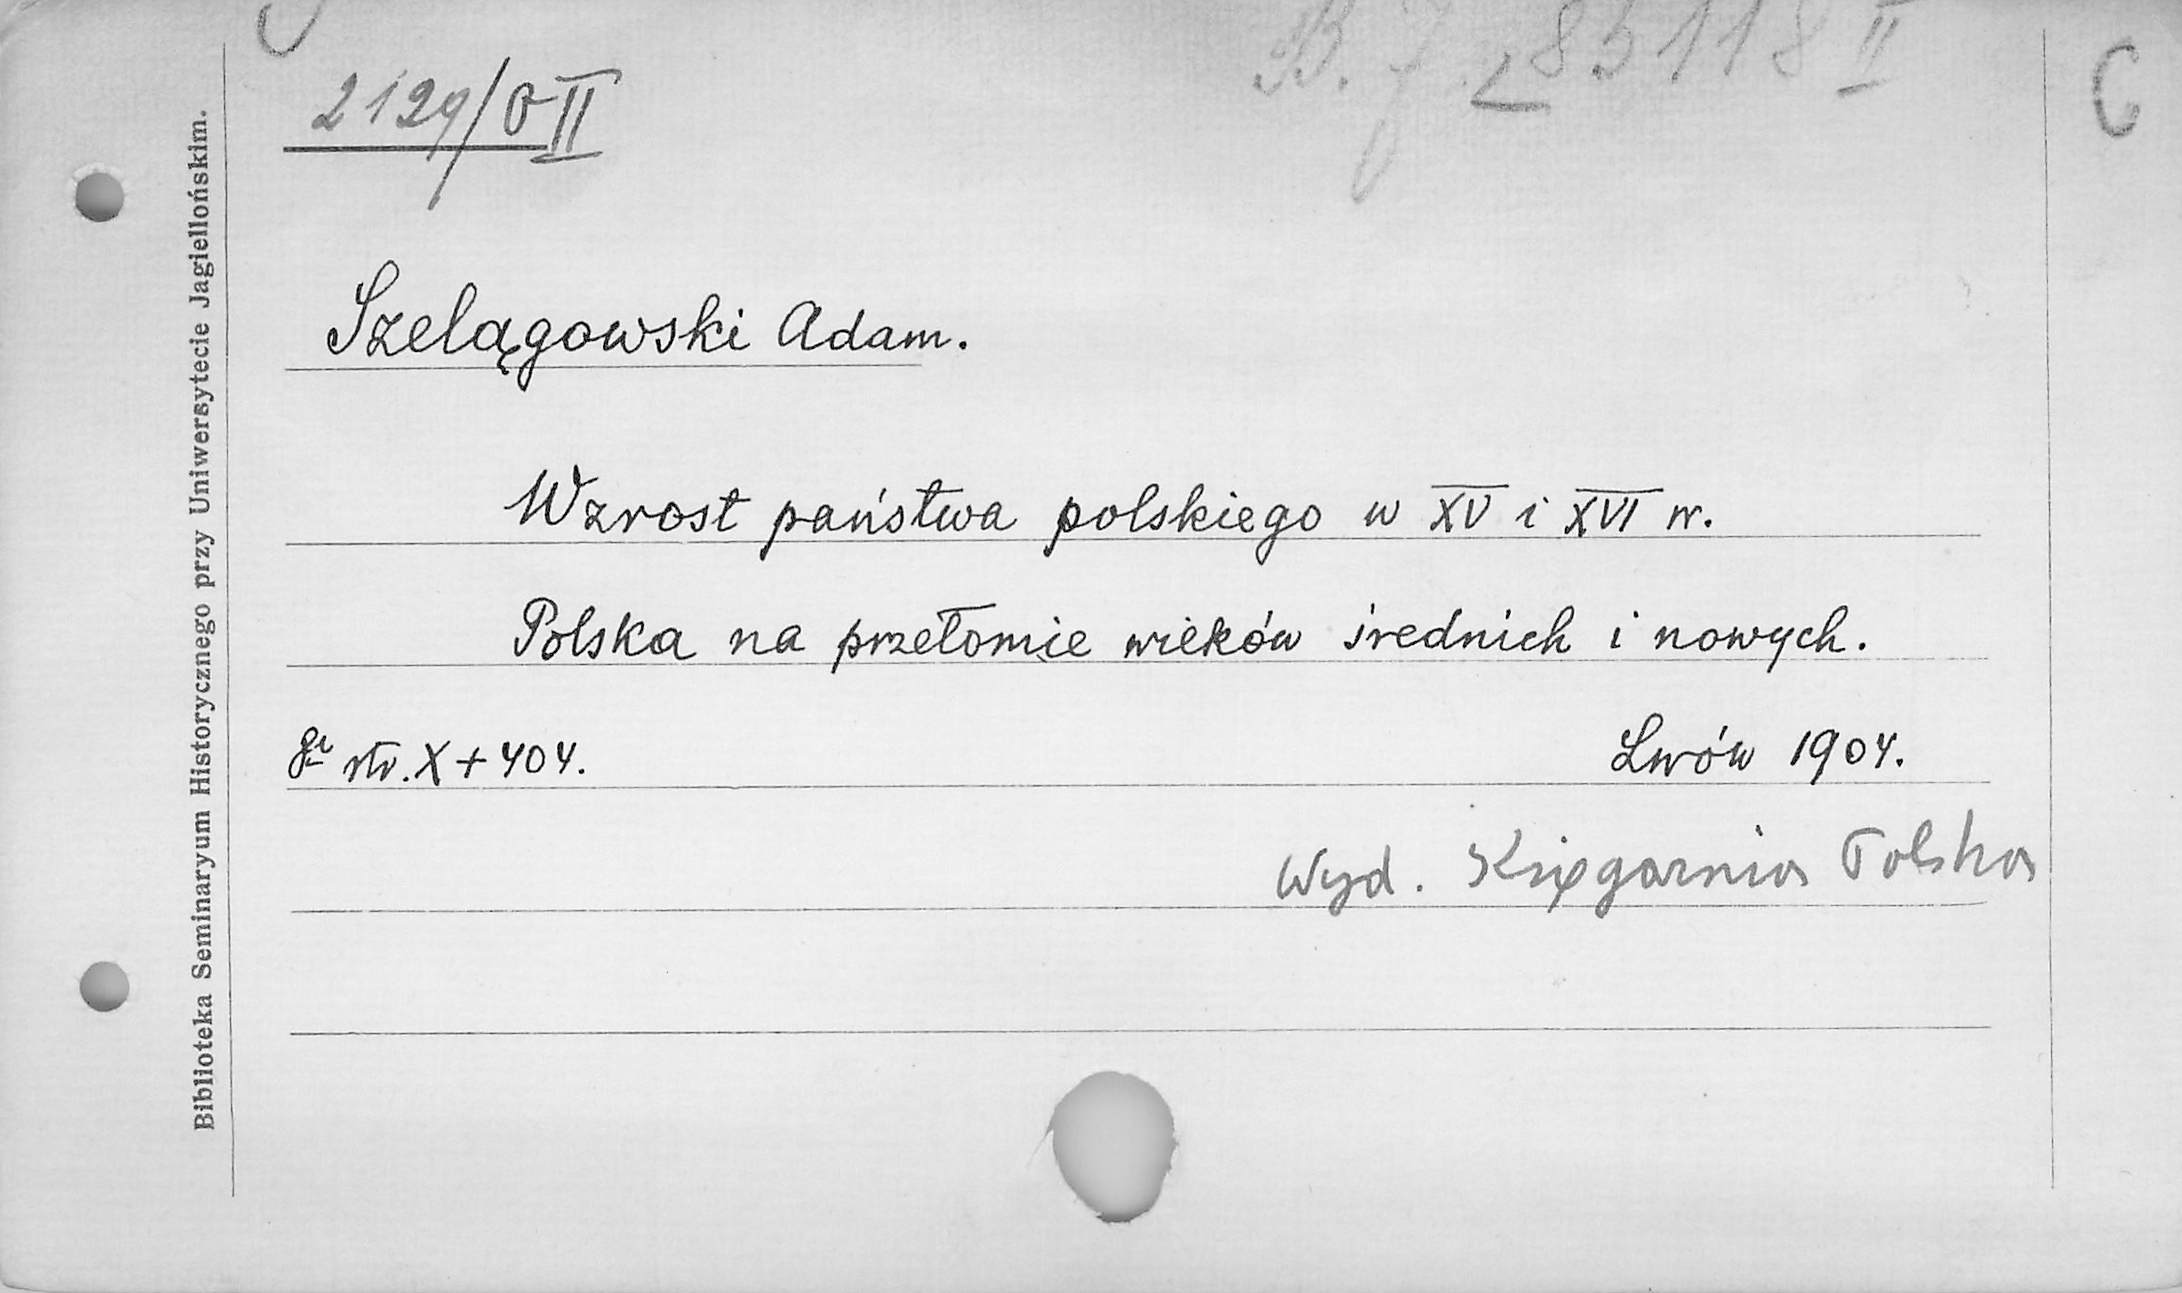 B. J. 85118 II
C
2129/O II
Szelągowski Adam.
Wzrost państwa polskiego w XV i XVI w.
Polska na przełomie wieków średnich i nowych.
8º str. X + 404.
Lwów 1904.
Wyd. Księgarnia Polska
Biblioteka Seminaryum Historycznego przy Uniwersytecie Jagiellońskim.